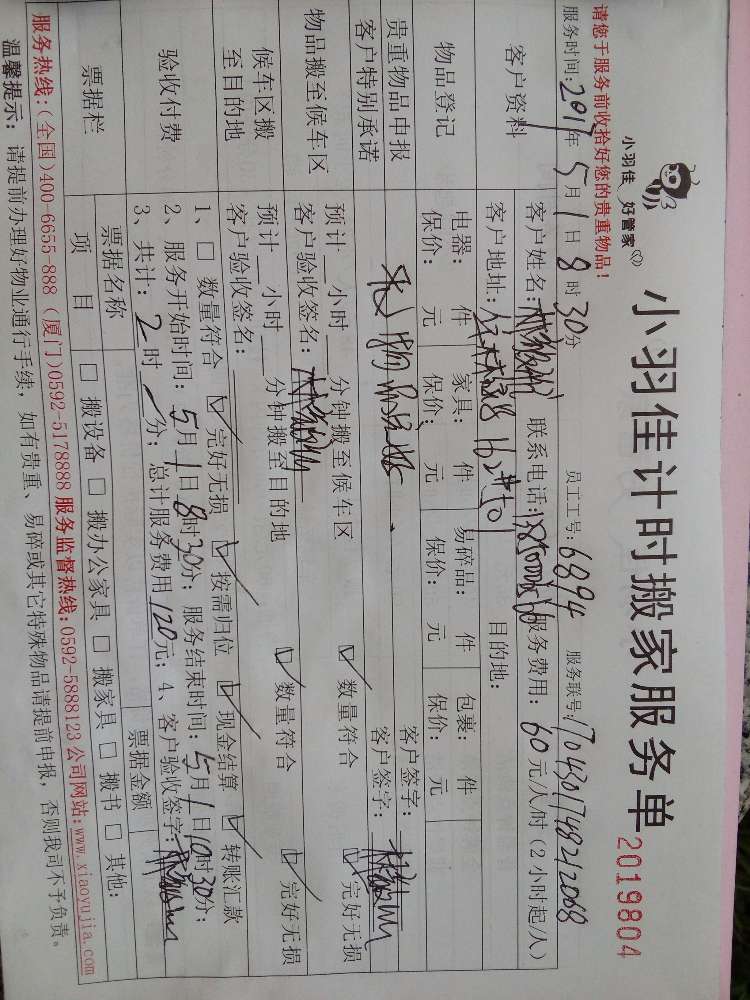 小羽佳 好管家
小羽佳计时搬家服务单 2019804
请您于服务前收拾好您的贵重物品!
服务时间:2017年5月1日8时30分 员工工号:6894 服务联号:1704301748212068
客户资料 客户姓名: 联系电话: 服务费用:60元/人/时(2小时起/人)
客户地址: 目的地:
物品登记 电器: 件 家具: 件 易碎品: 件 包裹: 件
保价: 元 保价: 元 保价: 元 保价: 元
贵重物品申报 客户签字:
客户特别承诺 客户签字:
物品搬至候车区 预计__小时__分钟搬至候车区 ☑数量符合 ☑完好无损
客户验收签名:
候车区搬至目的地 预计__小时__分钟搬至目的地 ☑数量符合 ☑完好无损
客户验收签名:
验收付费 1、□数量符合 ☑完好无损 ☑按需归位 ☑现金结算 ☑转账汇款
2、服务开始时间:5月1日8时30分;服务结束时间:5月1日10时30分;
3、共计:2时/分;总计服务费用120元;4、客户验收签字:
票据栏 票据名称 票据金额
项目 □搬设备 □搬办公家具 □搬家具 □搬书 □其他:
服务热线:(全国)400-6655-888 (厦门)0592-5178888 服务监督热线:0592-5888123 公司网站:www.xiaoyujia.com
温馨提示:请提前办理好物业通行手续,如有贵重、易碎或其它特殊物品请提前申报,否则我司不予负责。